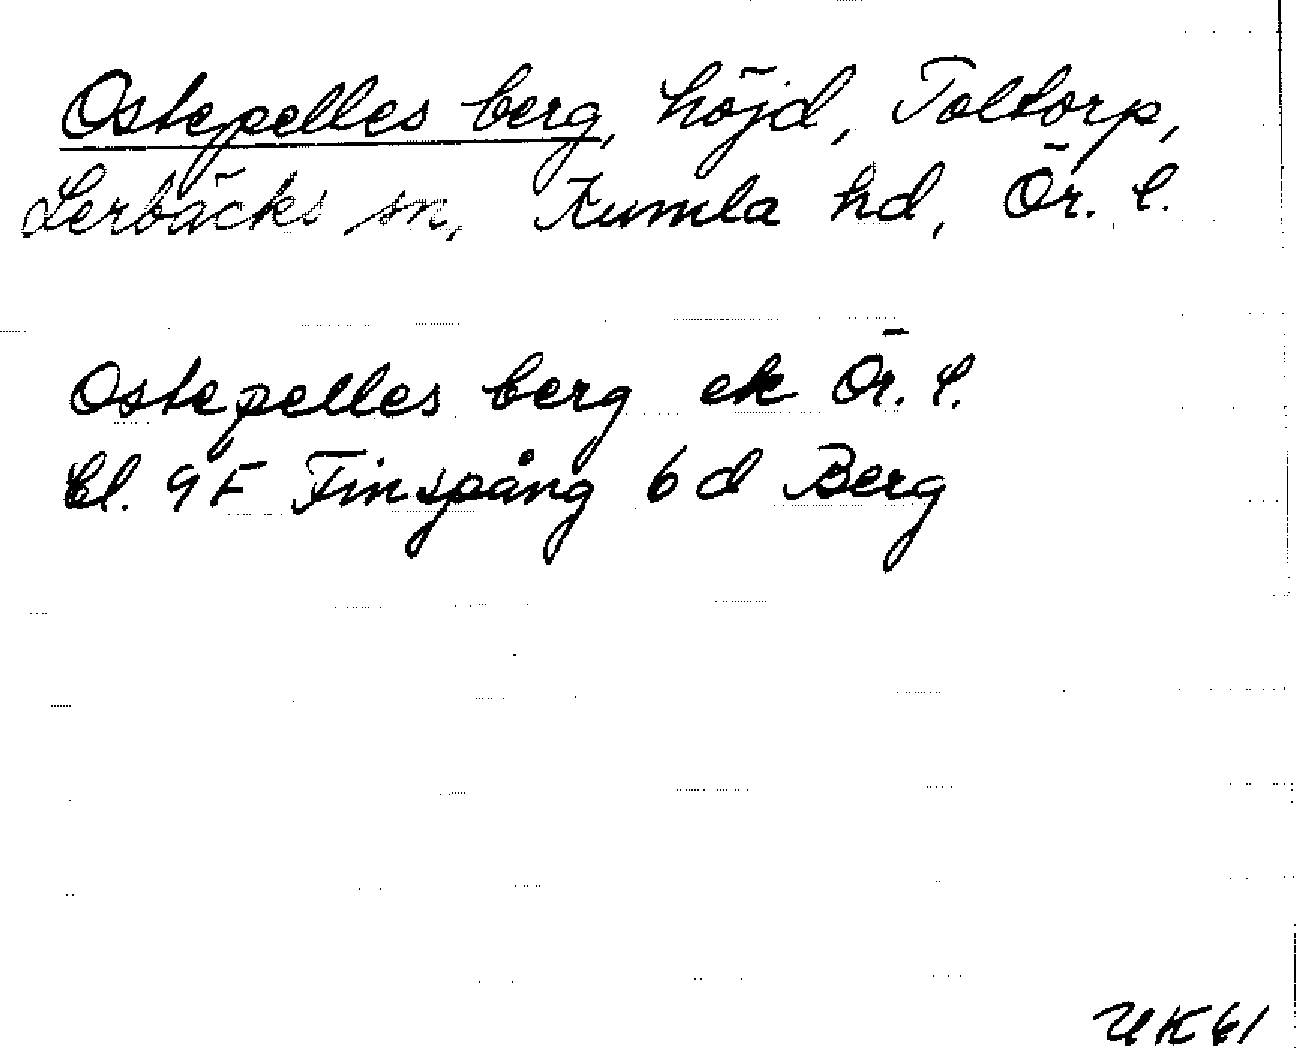 Ostepelles berg, höjd, Toltorp,
Lerbäcks sn, Kumla hd, Ör. l.
Ostepelles berg ek Ör. l.
bl. 9F Finspång 6d Berg
UK61